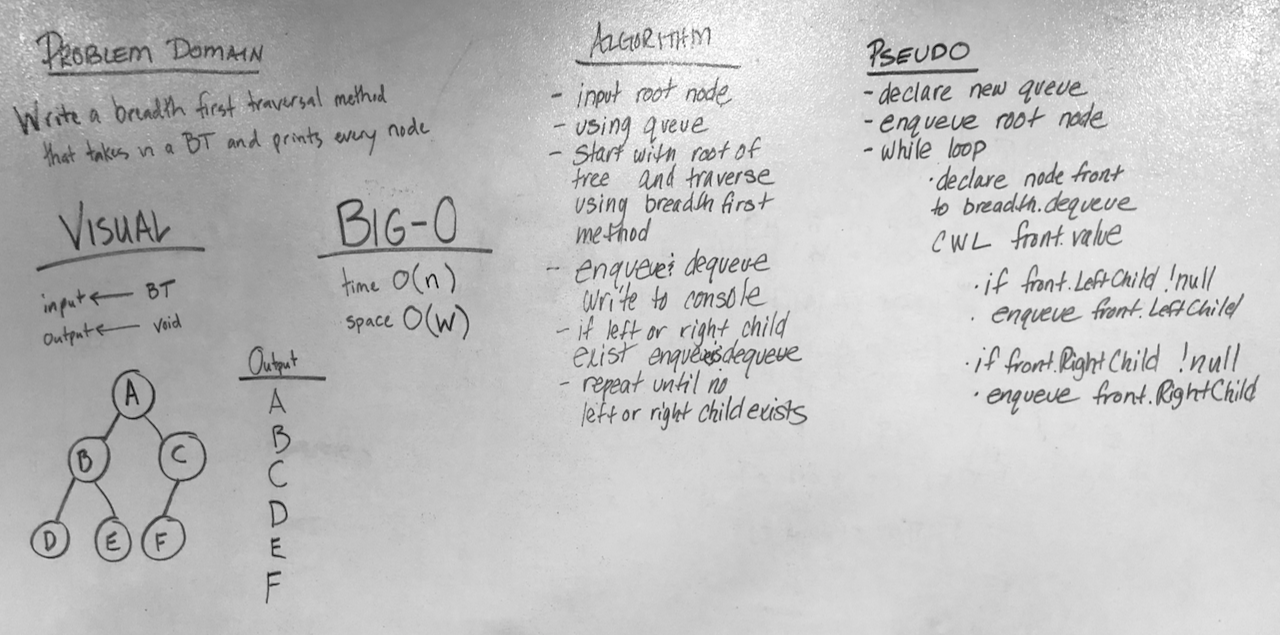 PROBLEM DOMAIN
Write a breadth first traversal method
that takes in a BT and prints every node
VISUAL
input ← BT
output ← void
A
B C
D E F
BIG-O
time O(n)
space O(w)
Output
A
B
C
D
E
F
ALGORITHM
- input root node
- using queue
- Start with root of
tree and traverse
using breadth first
method
- enqueue & dequeue
write to console
- if left or right child
exist enqueue & dequeue
- repeat until no
left or right child exists
PSEUDO
- declare new queue
- enqueue root node
- while loop
· declare node front
to breadth.dequeue
CWL front.value
· if front.LeftChild !null
· enqueue front.LeftChild
· if front.RightChild !null
· enqueue front.RightChild